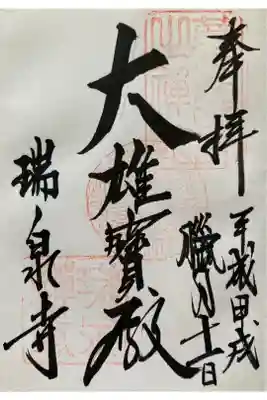 奉拝
平成甲戌
臘月十一日
大雄寶殿
瑞泉寺